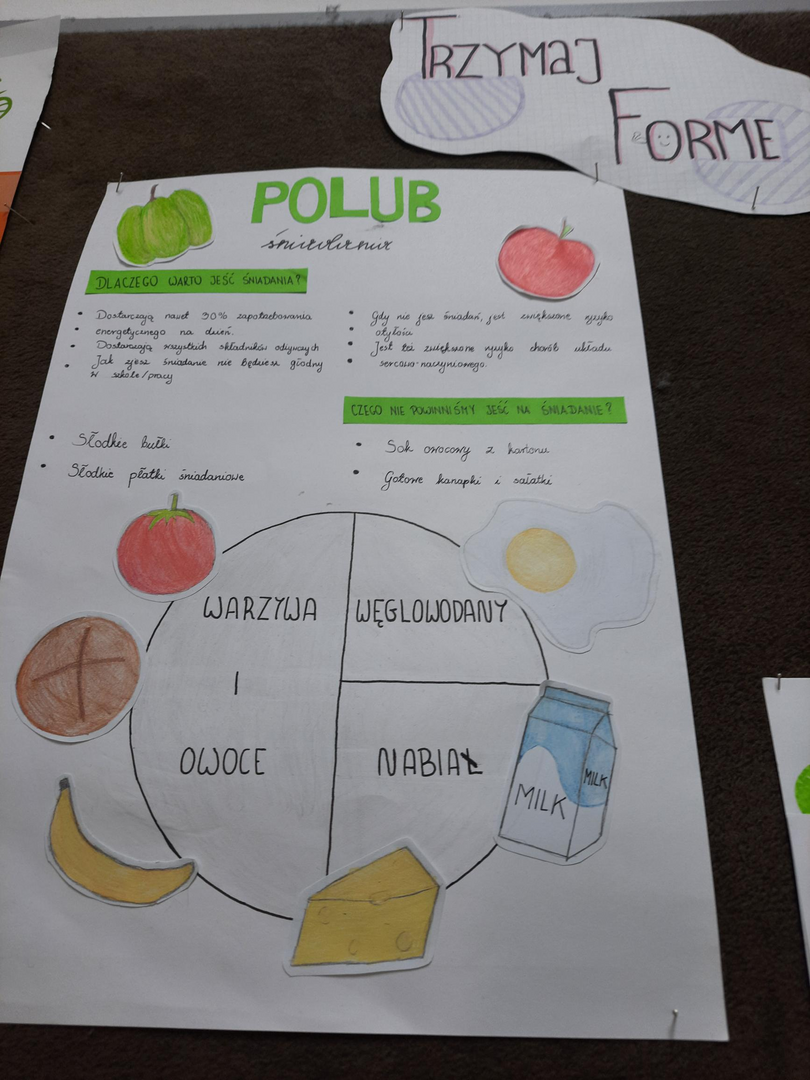 TRZYMAJ
FORME
POLUB
śniadania
DLACZEGO WARTO JEŚĆ ŚNIADANIA?
• Dostarczają nawet 30% zapotrzebowania
• energetycznego na dzień.
• Dostarczają wszystkich składników odżywczych
• Jak zjesz śniadanie nie będziesz głodny
w szkole/pracy
• Gdy nie jesz śniadań, jest zwiększone ryzyko
• otyłości
• Jest też zwiększone ryzyko chorób układu
• sercowo-naczyniowego.
CZEGO NIE POWINNIŚMY JEŚĆ NA ŚNIADANIE?
• Słodkie bułki
• Słodkie płatki śniadaniowe
• Sok owocowy z kartonu
• Gotowe kanapki i sałatki
WARZYWA
I
OWOCE
WĘGLOWODANY
NABIAŁ
MILK
MILK